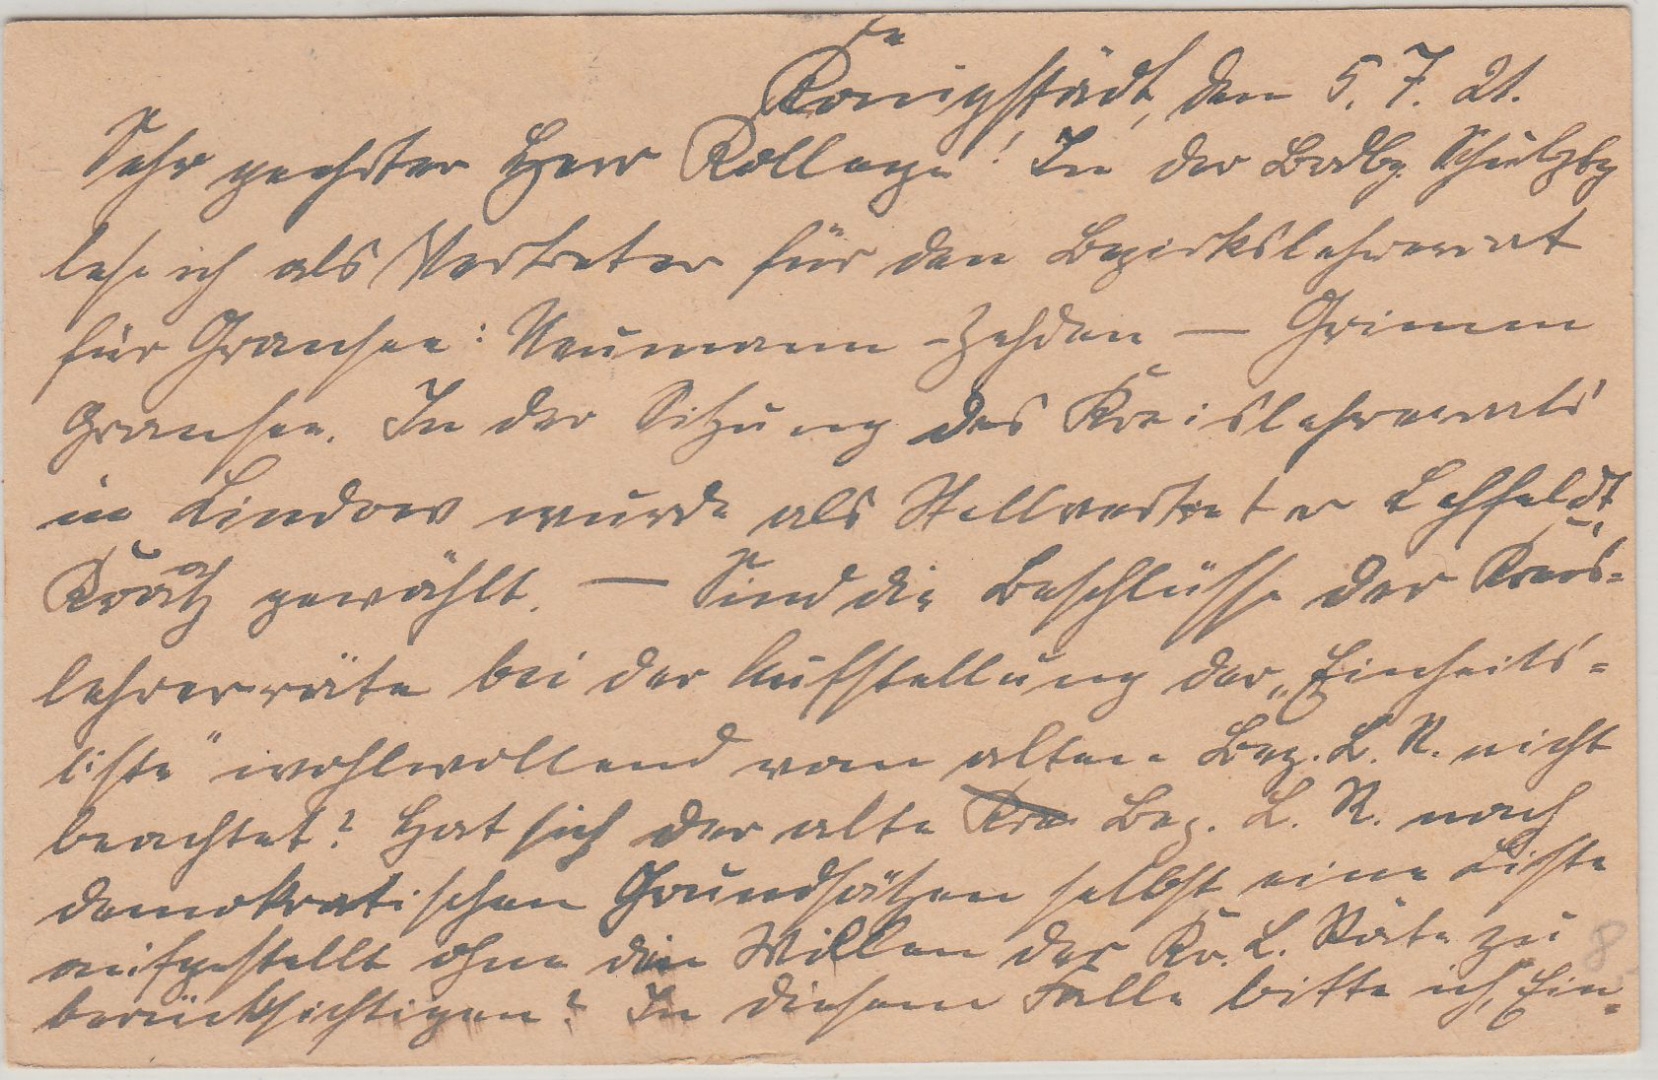 Königstädt, den 5. 7. 21.
Sehr geehrter Herr Kollege! In der Brdbg. Schulztg
lese ich als Vertreter für den Bezirkslehrerrat
für Gransee: Neumann-Zehden — Grimm
Gransee. In der Sitzung des Kreislehrerrats
in Lindow wurde als Stellvertreter Lehfeldt,
Kraatz gewählt. — Sind die Beschlüsse der Kreis-
lehrerräte bei der Aufstellung der „Einheits-
liste" wohlwollend vom alten Bez. L. R. nicht
beachtet? Hat sich der alte Kre Bez. L. R. nach
demokratischen Grundsätzen selbst eine Liste
aufgestellt ohne den Willen der Kr. L. Räte zu
berücksichtigen? In diesem Falle bitte ich, Ein-
8